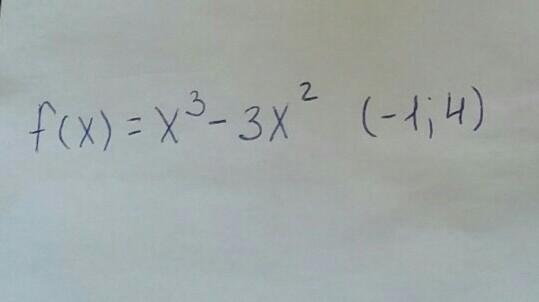 f(x) = x³ - 3x² (-1; 4)